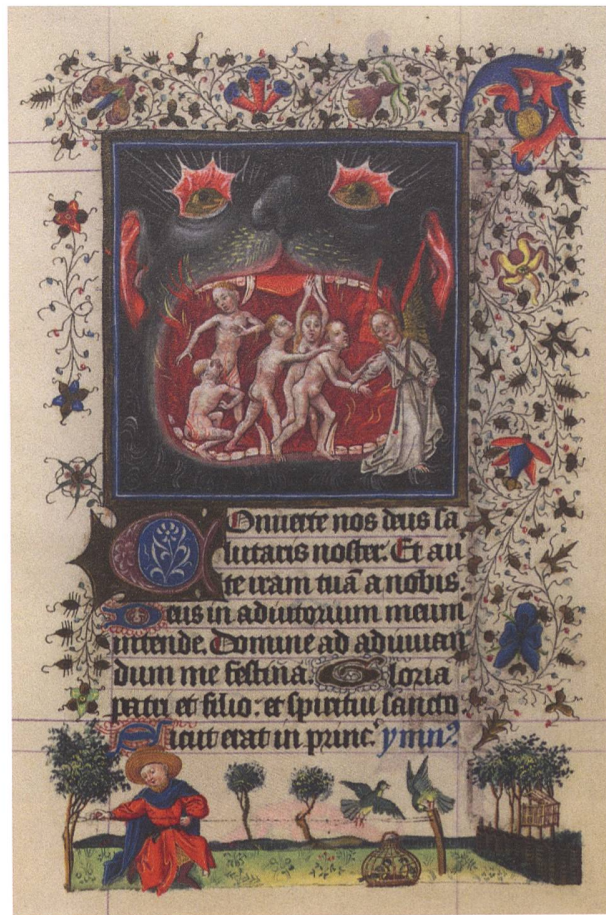 Conuerte nos deus sa
lutaris noster. Et au
te iram tuã a nobis.
Deus in adiutorium meum
intende. Domine ad adiuuan
dum me festina. Gloria
patri et filio: et spiritui sancto.
Sicut erat in princ. ymn?